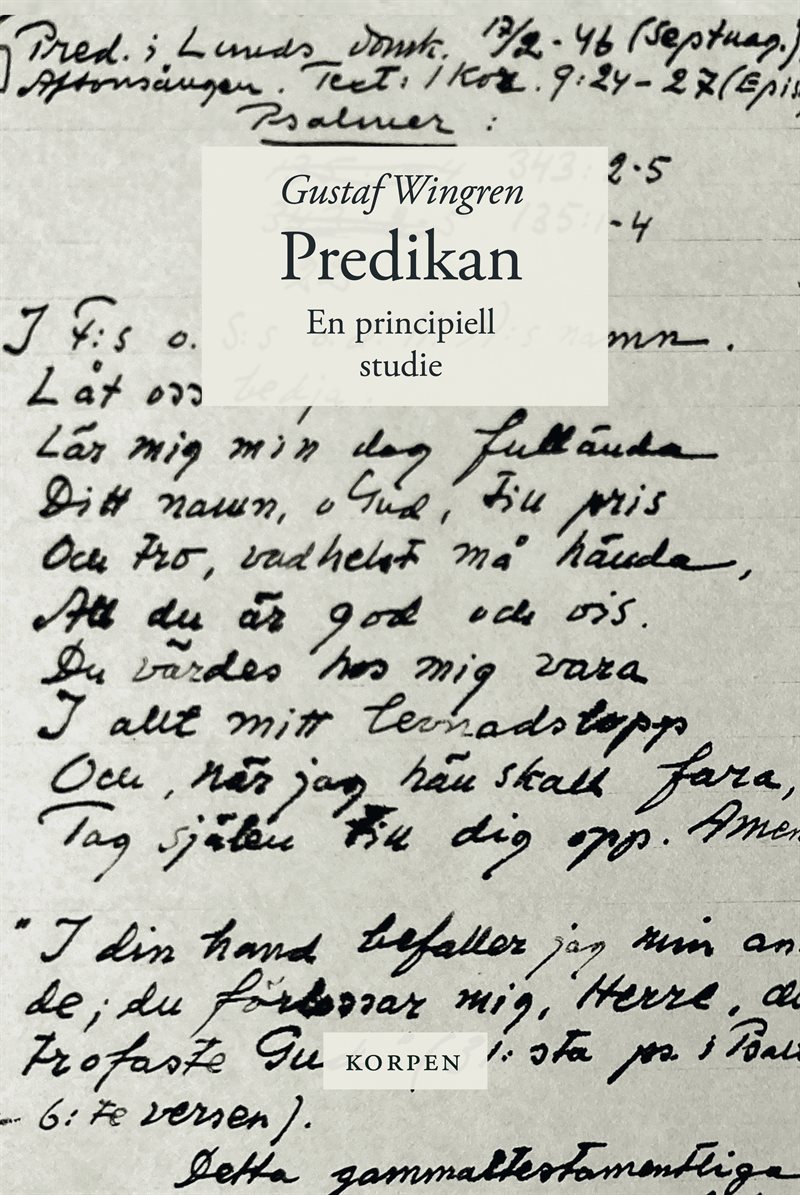 Pred. i Lunds domk. 17/2 - 46 (Septuag.)
Aftonsången. Text: 1 Kor. 9:24 - 27 (Epis
Psalmer :
343: 2-5
135: 1-4
Gustaf Wingren
Predikan
En principiell
studie
I F:s o. S:s namn.
Låt oss bedja.
Lär mig min dag fullända
Ditt namn, o Gud, till pris
Och tro, vadhelst må hända,
Att du är god och vis.
Du värdes hos mig vara
I allt mitt levnadslopp
Och, när jag hän skall fara,
Tag själen till dig opp. Amen
"I din hand befaller jag min an-
de; du förlossar mig, Herre, du
trofaste Gu 31: sta ps i Psalt
- 6: te versen).
KORPEN
Detta gammaltestamentliga